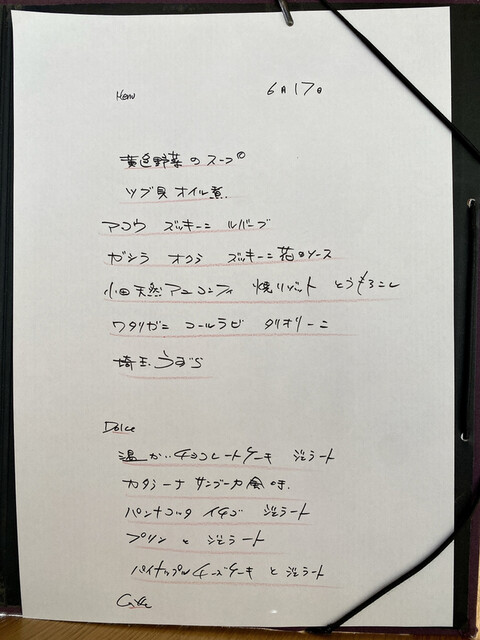 Menu 6月17日
黄色野菜のスープ
ツブ貝 オイル煮
アコウ ズッキーニ ルバーブ
ガシラ オクラ ズッキーニ花のソース
小田天然アユコンフィ 焼リゾット とうもろこし
ワタリガニ コールラビ タリオリーニ
埼玉 うずら
Dolce
温かいチョコレートケーキ ジェラート
カタラーナ サンブーカ風味
パンナコッタ イチゴ ジェラート
プリンとジェラート
パイナップルチーズケーキとジェラート